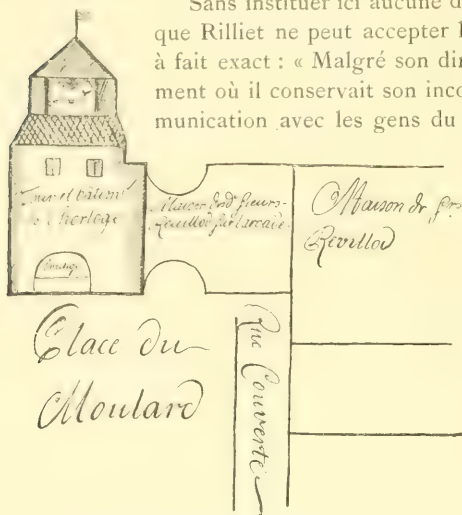 Sans instituer ici aucune d
que Rilliet ne peut accepter l
à fait exact : « Malgré son dir
ment où il conservait son inco
munication avec les gens du
Tour et bâtiment
horloge
Maison de
Revilliod
Revilliod sur l'arcade
Place du
Moulard
Rue Couverte